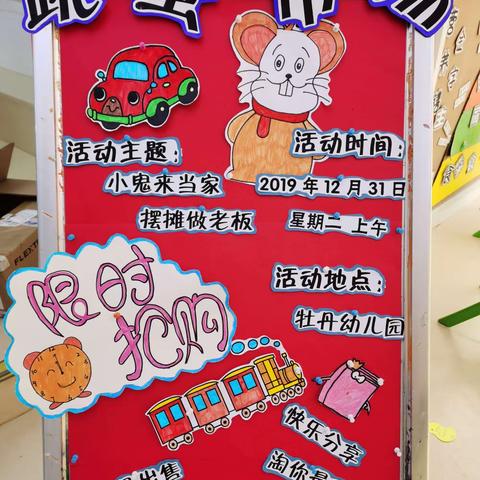 跳蚤市场
活动主题：
小鬼来当家
摆摊做老板
活动时间：
2019年12月31日
星期二 上午
活动地点：
牡丹幼儿园
限时
抢购
快乐分享
淘你
出售